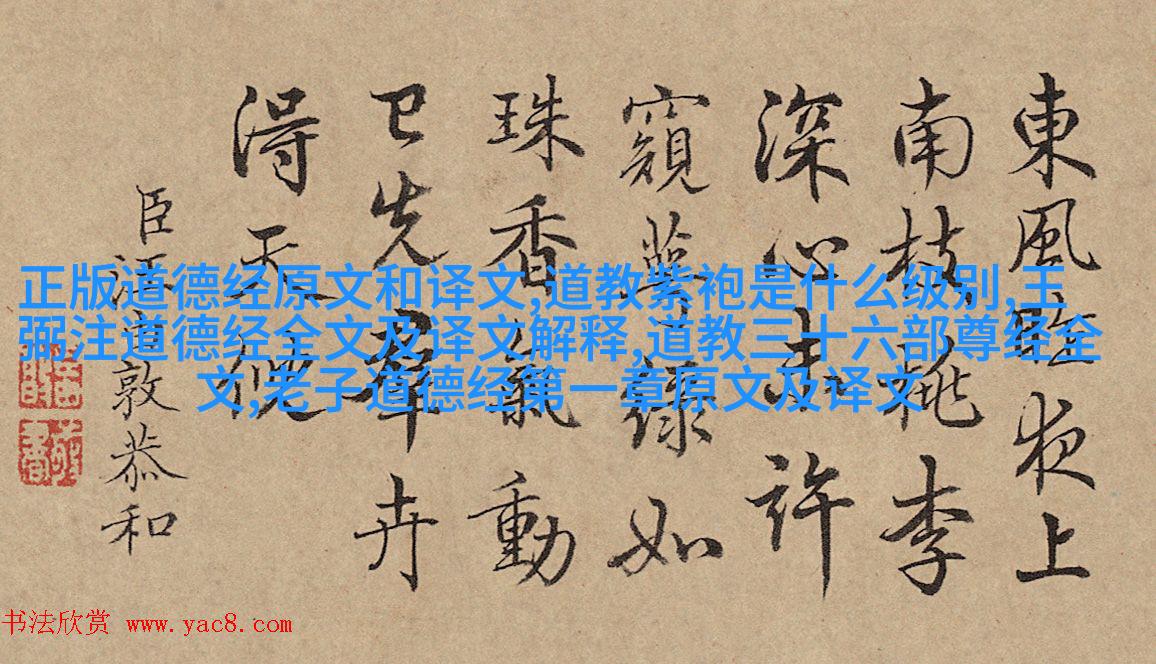 東風夜上
南枝桃李
深心未許
窺蕊綠如
珠香氣動
已先羣卉
得天倪
臣汪由敦恭和
正版道德经原文和译文,道教紫袍是什么级别,王
弼注道德经全文及译文解释,道教三十六部尊经全
文,老子道德经第一章原文及译文
书法欣赏 www.yac8.com